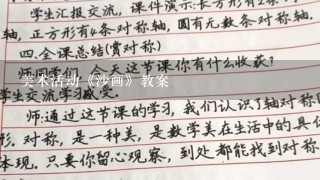 学生汇报交流，课件演示：长方形有2条
轴，正方形有4条对称轴，圆有无数条对称轴.
四.全课总结(赏对称)
师：同学们，今天这节课你有什么收获？
美术活动《沙画》教案
学生交流学习感受.
师：通过这节课的学习，我们认识了轴对称
形.对称，是一种美，是数学美在生活中的具
体现.只要你留心观察，到处都能找到对称